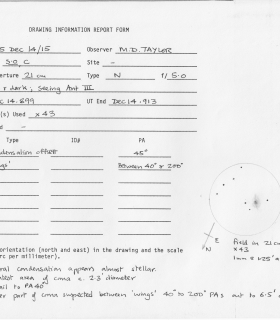 DRAWING INFORMATION REPORT FORM
DEC 14/15 Observer M.D. TAYLOR
Site -
erture 21cm Type N f/ 5.0
dark, seeing Ant III
14.899 UT End DEC 14.913
(s) Used x43
ed -
Type ID# PA
ndensation offset 45°
ings' Between 40° & 200°
orientation (north and east) in the drawing and the scale
rc per millimeter).
E
N
field in 21cm
x43
1mm = 1.25'
ral condensation appears almost stellar.
est area of coma c. 2.3' diameter
ail to PA 40°
er part of coma suspected between 'wings' 40° to 200° PAs out to 6.5'